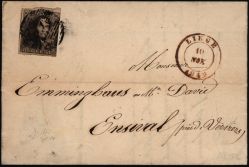 LIEGE
10
NOV
1849
Monsieur
Emminghaus
Ensival (près de Verviers)